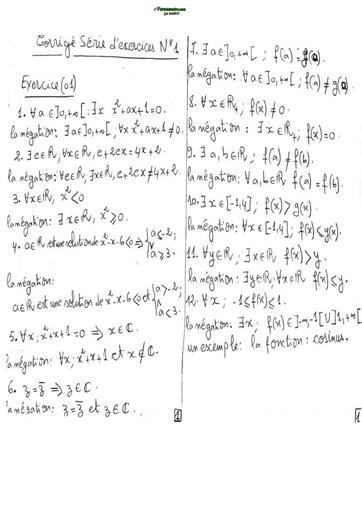 Pharmaonline.com
Corrigé Série d'exercices N°1
Exercice (01)
1. ∀a∈]0,+∞[; ∃x x²+ax+1=0.
la négation: ∃a∈]0,+∞[, ∀x x²+ax+1≠0.
2. ∃e∈ℝ, ∀x∈ℝ, e+2ex=4x+2.
la négation: ∀e∈ℝ, ∃x∈ℝ, e+2ex≠4x+2.
3. ∀x∈ℝ, x²<0
la négation: ∃x∈ℝ, x²≥0.
4. a∈ℝ est une solution de x²-x-6<0 ⇒ {a≤-2; ∨ a≥3.
la négation:
a∈ℝ, est une solution de x²-x-6<0 et {a>-2; ∧ a<3.
5. ∀x; x²+x+1=0 ⇒ x∈ℂ.
la négation: ∀x; x²+x+1 et x∉ℂ.
6. z=z̄ ⇒ z∈ℂ.
la négation: z=z̄ et z∈ℂ.
1
7. ∃a∈]0,+∞[; f(a)=g(a).
la négation: ∀a∈]0,+∞[, f(a)≠g(a)
8. ∀x∈ℝ₊; f(x)≠0.
la négation: ∃x∈ℝ₊; f(x)=0.
9. ∃a,b∈ℝ; f(a)≠f(b).
la négation: ∀a,b∈ℝ f(a)=f(b).
10. ∃x∈[-1,4]; f(x)>g(x).
la négation: ∀x∈[-1,4]; f(x)≤g(x).
11. ∀y∈ℝ; ∃x∈ℝ f(x)>y.
la négation: ∃y∈ℝ; ∀x∈ℝ f(x)≤y.
12. ∀x; -1≤f(x)≤1.
la négation: ∃x; f(x)∈]-∞,-1[∪]1,+∞[
un exemple: la fonction: cosinus.
1